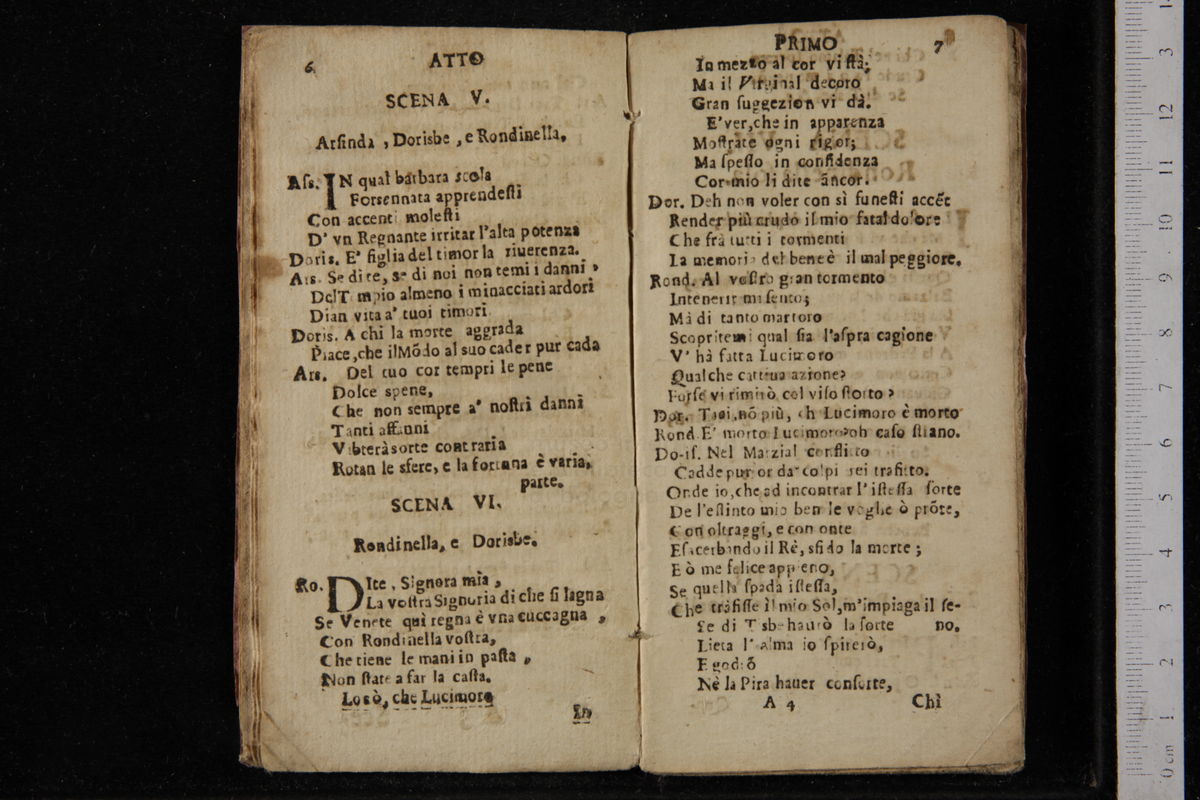 6 ATTO
SCENA V.
Arsinda, Dorisbe, e Rondinella.
Ars. IN qual barbara scola
Forsennata apprendesti
Con accenti molesti
D' vn Regnante irritar l'alta potenza
Doris. E' figlia del timor la riuerenza.
Ars. Se di te, se di noi non temi i danni,
Del T mpio almeno i minacciati ardori
Dian vita a' tuoi timori.
Doris. A chi la morte aggrada
Piace, che il Mõdo al suo cader pur cada
Ars. Del tuo cor tempri le pene
Dolce spene,
Che non sempre a' nostri danni
Tanti affanni
Vibterà sorte contraria
Rotan le sfere, e la fortuna è varia,
parte.
SCENA VI.
Rondinella, e Dorisbe.
Ro. DIte, Signora mìa,
La vostra Signoria di che si lagna
Se Venete quì regna è vna cuccagna,
Con Rondinella vostra,
Che tiene le mani in pasta,
Non state a far la casta.
Lo sò, che Lucimoro
In
PRIMO 7
In mezzo al cor vi stà;
Ma il Virginal decoro
Gran suggezion vi dà.
E' ver, che in apparenza
Mostrate ogni rigor;
Ma spesso in confidenza
Cor mio li dite ancor.
Dor. Deh non voler con sì funesti accẽt
Render più crudo il mio fatal dolore
Che frà tutti i tormenti
La memoria del bene è il mal peggiore.
Rond. Al vostro gran tormento
Intenerir mi sento;
Mà di tanto martoro
Scopritemi qual sia l'aspra cagione
V' hà fatta Lucimoro
Qualche cattiua azione?
Forse vi rimirò col viso storto?
Dor. Taci, nõ più, ch Lucimoro è morto
Rond. E' morto Lucimoro? oh caso strano.
Dorif. Nel Marzial conflitto
Cadde pur or da' colpi rei trafitto.
Onde io, che ad incontrar l' istessa sorte
De l'estinto mio ben le voglie ò prõte,
Con oltraggi, e con onte
Esacerbando il Rè, sfido la morte;
E ò me felice appieno,
Se quella spada istessa,
Che trafisse il mio Sol, m'impiaga il se-
Se di Tisbe haurò la sorte no.
Lieta l'alma io spirerò,
E godrõ
Nè la Pira hauer consorte,
A 4 Chì